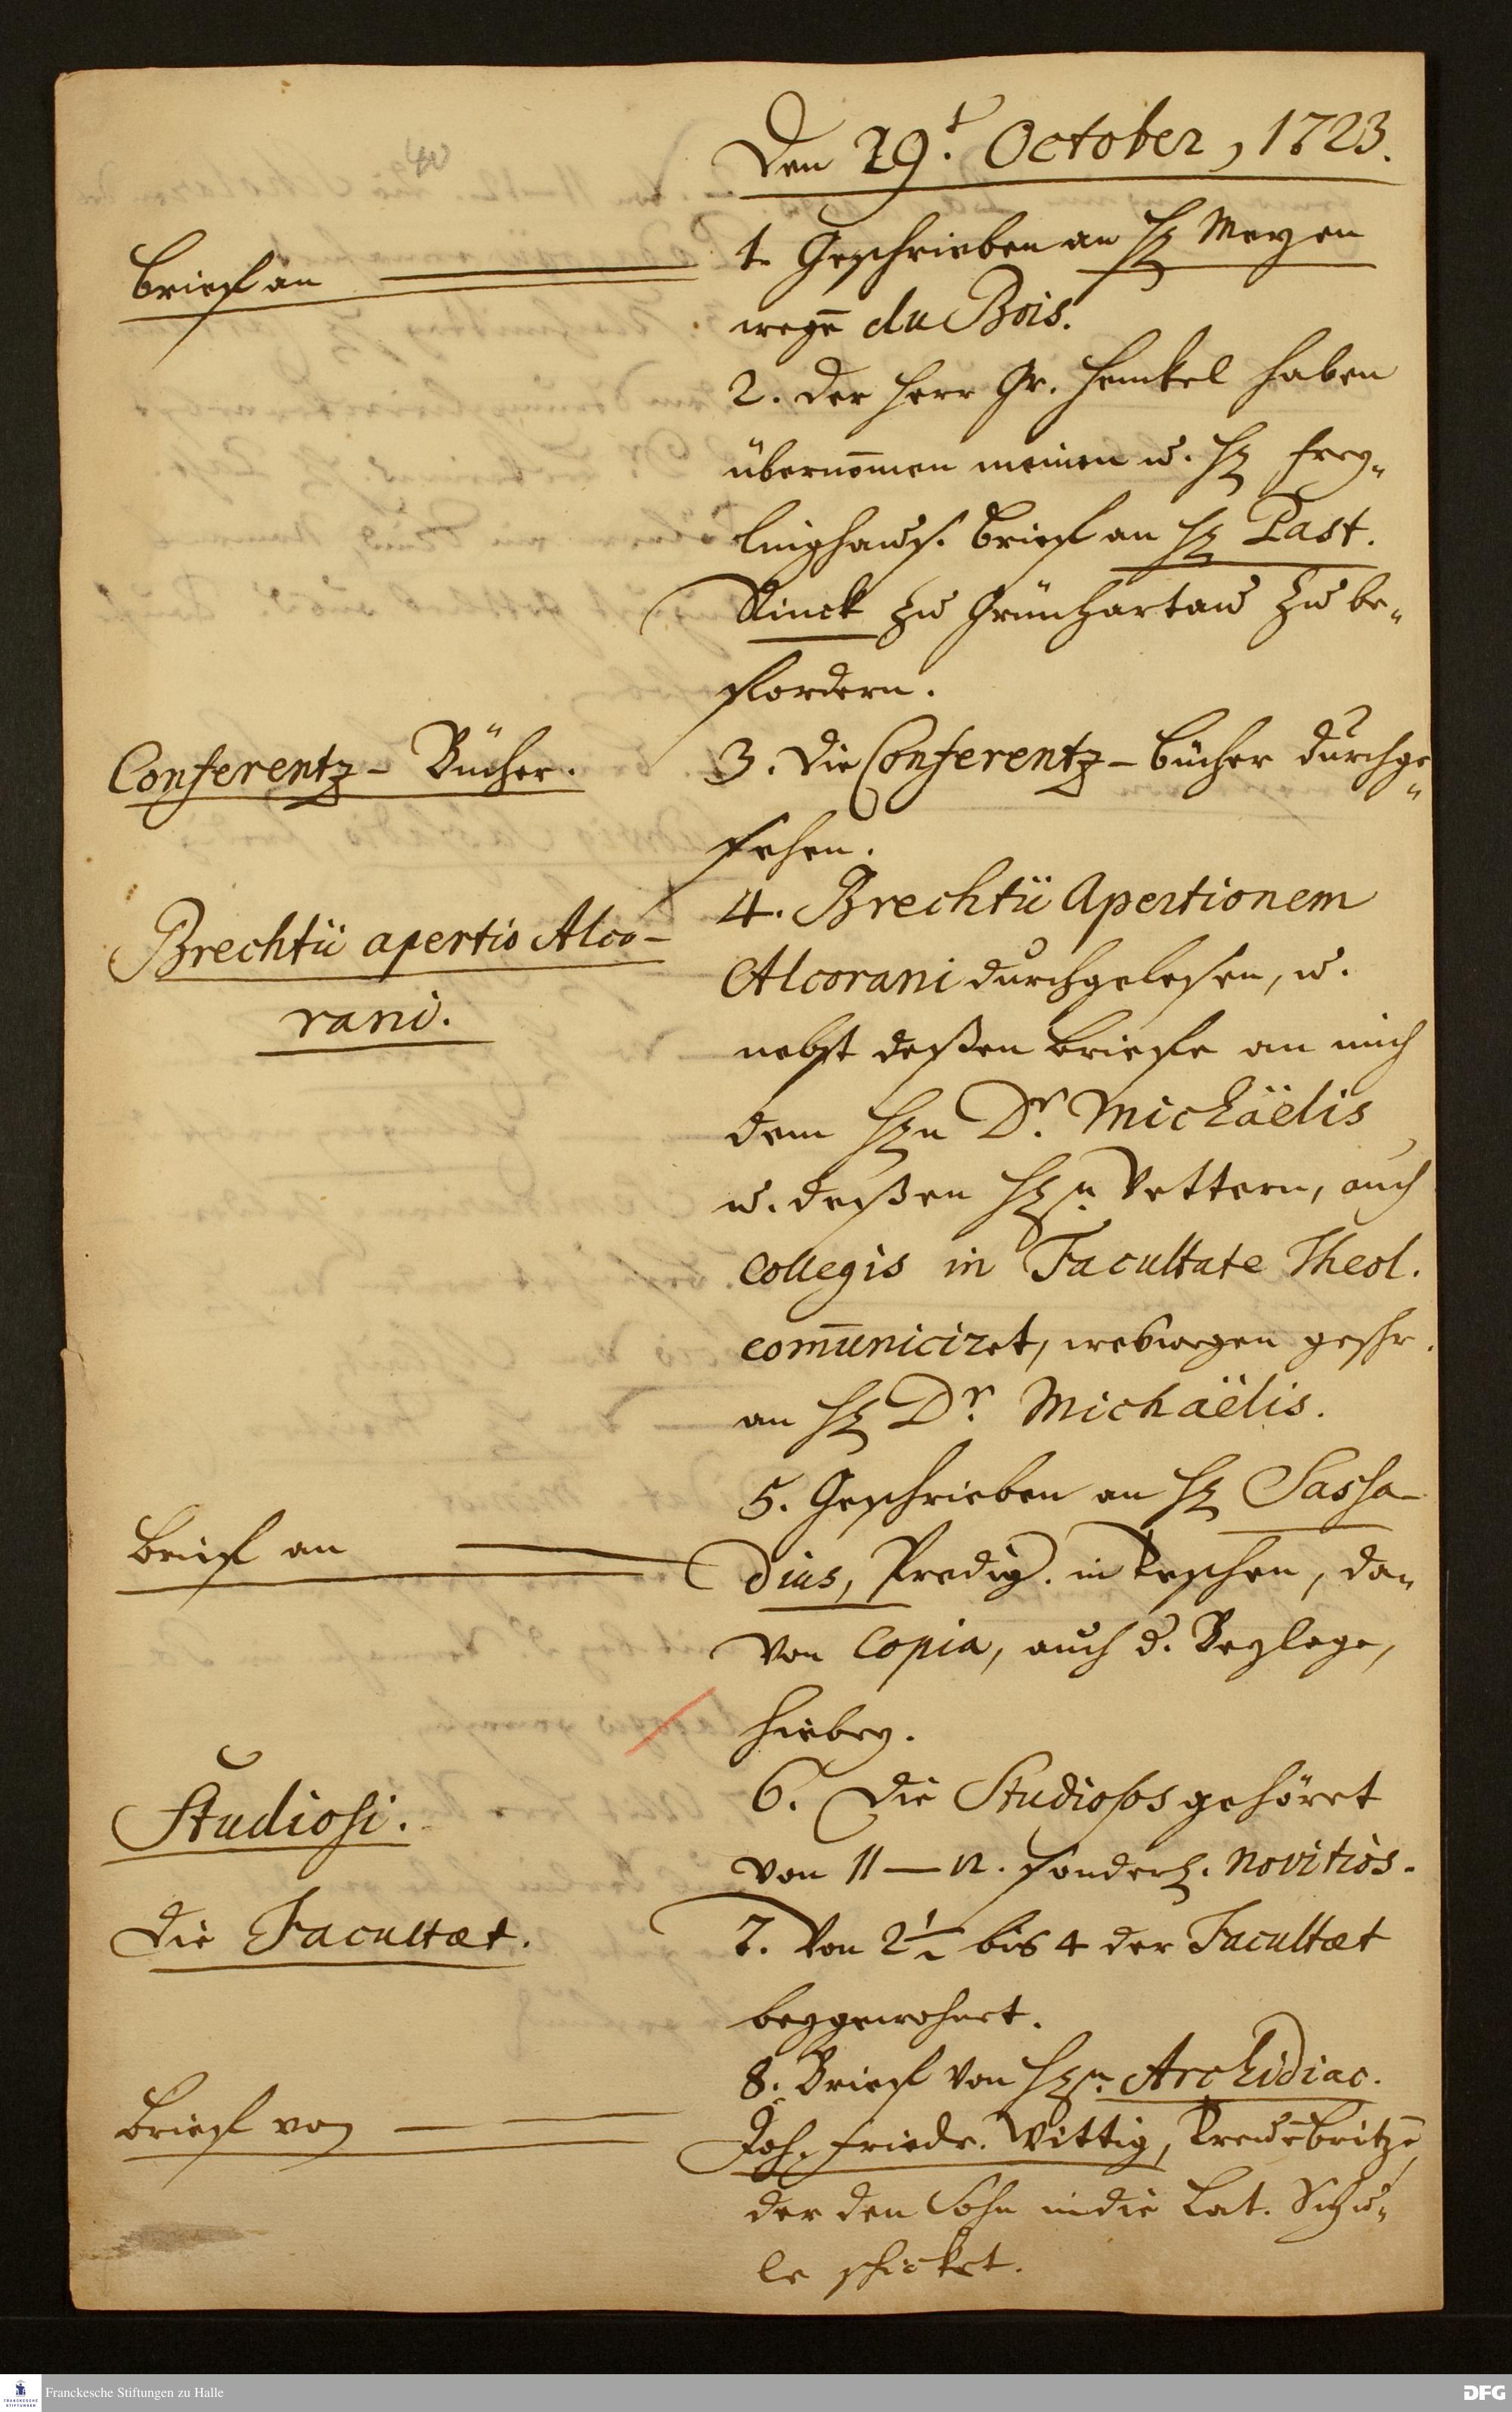 Den 29.t October, 1723.
Brieff an
1. Geschrieben an H. Meyen
wegē du Bois.
2. Der Herr Gr. Henckel haben
übernom̄en meinen u. H. Frey-
linghaus. Brieff an H. Past.
Rinck zu Grünhartau zu be-
fördern.
Conferentz-Bücher.
3. Die Conferentz-Bücher durchge-
sehen.
Brechtii apertio Alco-
rani.
4. Brechtii Apertionem
Alcorani durchgelesen, u.
nebst deßen Briefe an mich
dem Hn Dr. Michaëlis
u. deßen Hn. Vettern, auch
Collegis in Facultate Theol.
com̄uniciret, weßwegen geschr.
an H. Dr. Michaëlis.
Brieff an
5. Geschrieben an H. Sassa-
dius, Predig. in Teschen, da-
von Copia, auch d. Beylage,
hiebey.
Studiosi.
6. Die Studiosos gehöret
von 11 — 12. sonderl. novitios.
Die Facultæt.
7. Von 2 1/2 bis 4 der Facultæt
beygewohnet.
Brieff von
8. Brieff von Hn. Archidiac.
Joh. Friedr. Wittig, Treuēbritzē,
der den Sohn in die Lat. Schu-
le schicket.
Franckesche Stiftungen zu Halle
DFG